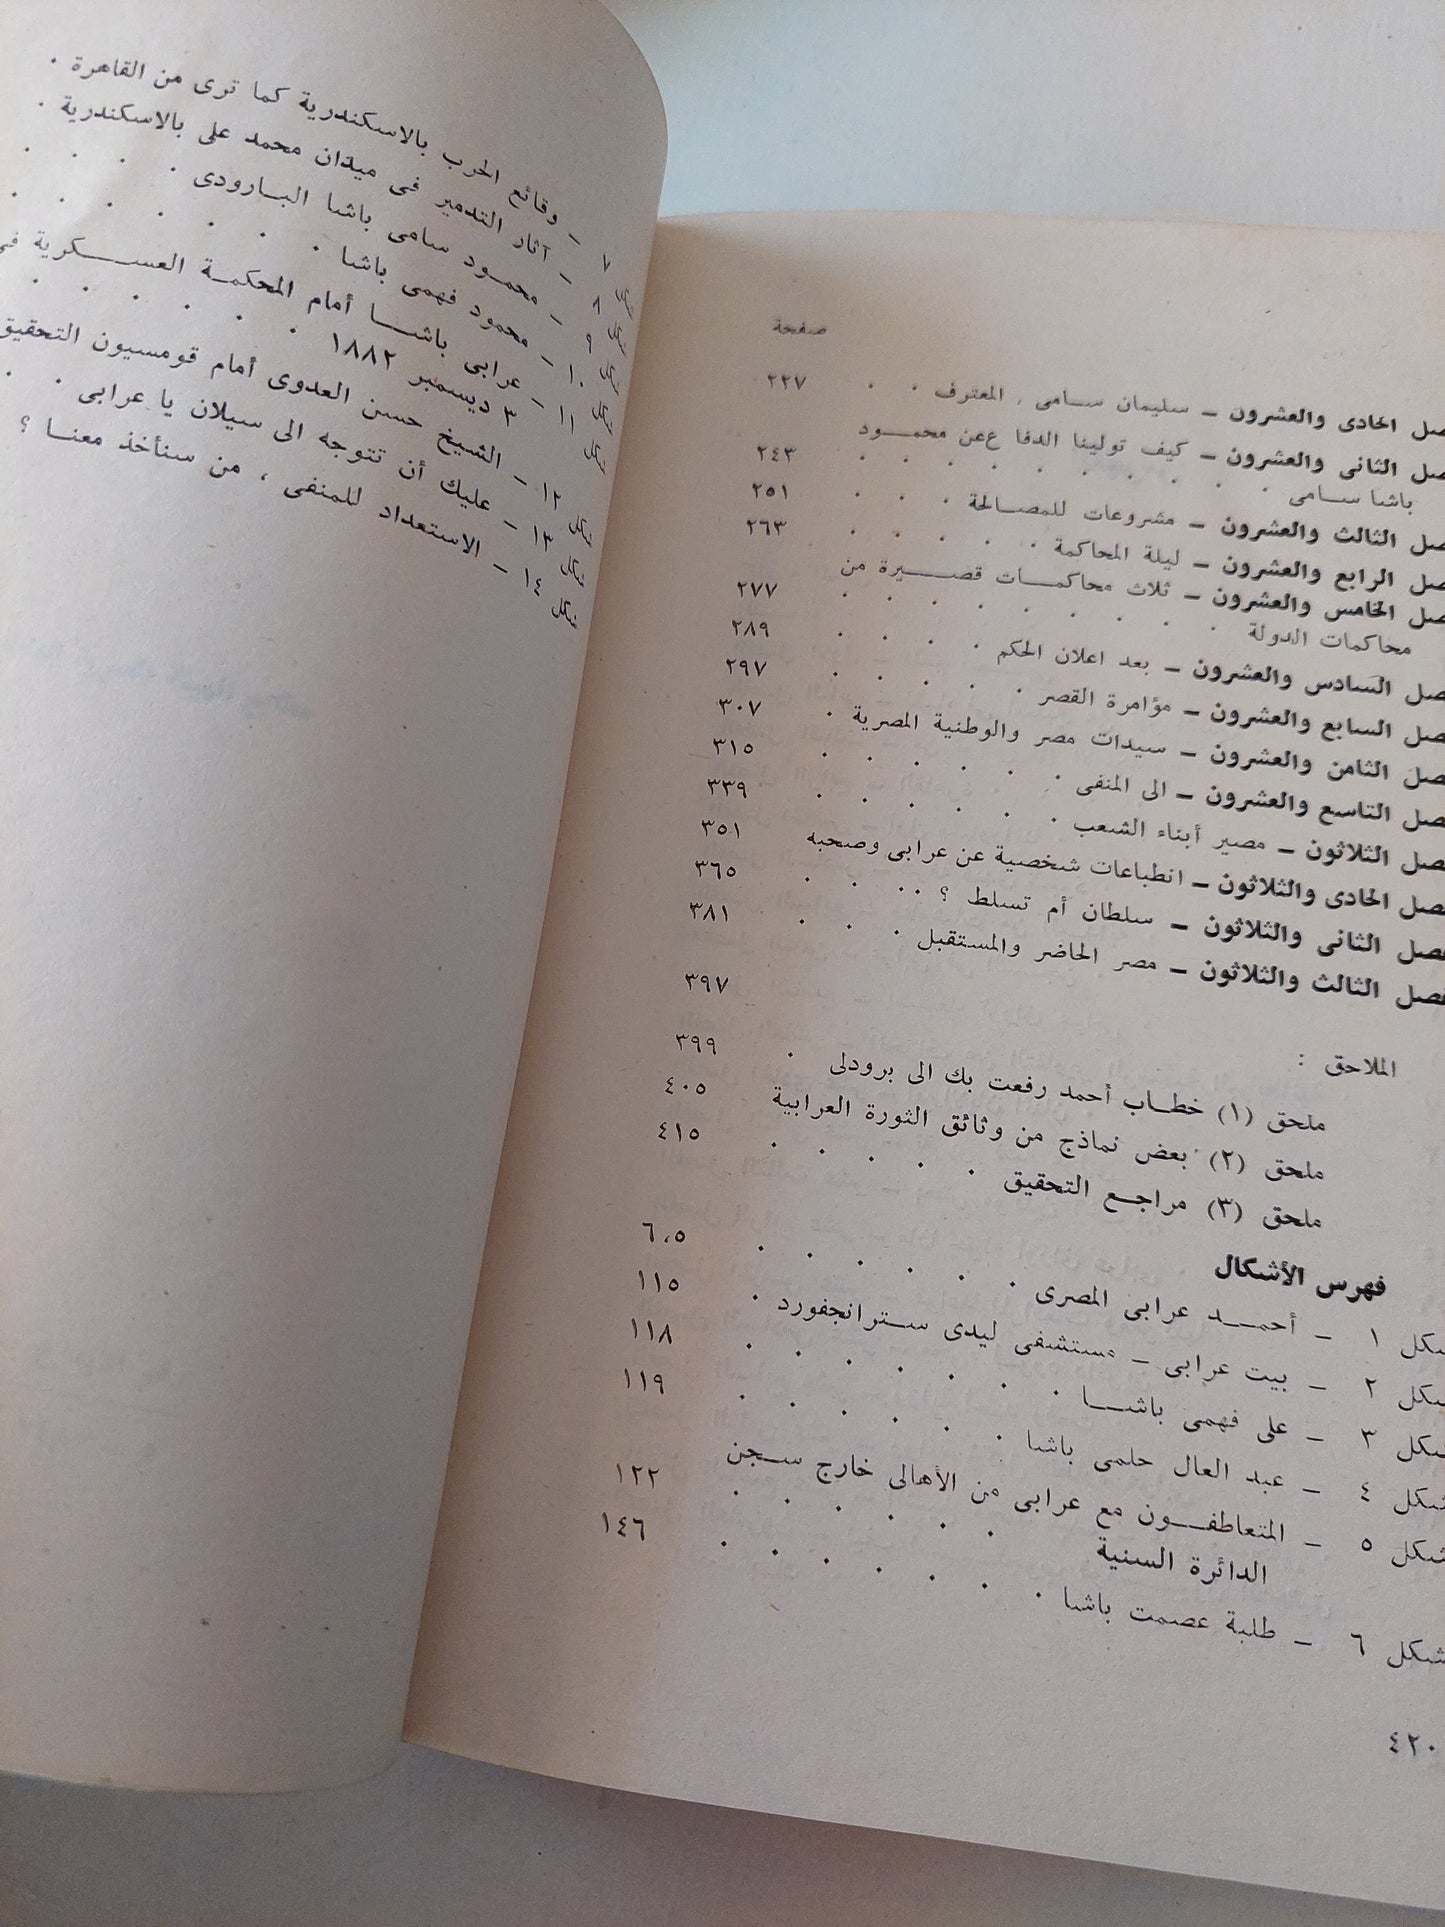 صفحة
صل الحادى والعشرون – سليمان سامى . المعترف . . . ٢٢٧
صل الثانى والعشرون – كيف تولينا الدفا ععن محمود
باشا سامى . . . . . . . . . ٢٤٣
صل الثالث والعشرون – مشروعات للمصالحة . . . ٢٥١
صل الرابع والعشرون – ليلة المحاكمة . . . . . ٢٦٣
صل الخامس والعشرون – ثلاث محاكمات قصيرة من
محاكمات الدولة . . . . . . . . ٢٧٧
صل السادس والعشرون – بعد اعلان الحكم . . . . ٢٨٩
صل السابع والعشرون – مؤامرة القصر . . . . . ٢٩٧
صل الثامن والعشرون – سيدات مصر والوطنية المصرية . ٣٠٧
صل التاسع والعشرون – الى المنفى . . . . . . ٣١٥
صل الثلاثون – مصير أبناء الشعب . . . . . . ٣٣٩
صل الحادى والثلاثون – انطباعات شخصية عن عرابى وصحبه ٣٥١
فصل الثانى والثلاثون – سلطان أم تسلط ؟ . . . . . ٣٦٥
فصل الثالث والثلاثون – مصر الحاضر والمستقبل . . . . ٣٨١
الملاحق : ٣٩٧
ملحق (١) خطاب أحمد رفعت بك الى برودلى . ٣٩٩
ملحق (٢) بعض نماذج من وثائق الثورة العرابية ٤٠٥
ملحق (٣) مراجع التحقيق . . . . . ٤١٥
فهرس الأشكال
شكل ١ – أحمد عرابى المصرى . . . . . . ٦،٥
شكل ٢ – بيت عرابى – مستشفى ليدى سترانجفورد . ١١٥
شكل ٣ – على فهمى باشا . . . . . . . ١١٨
شكل ٤ – عبد العال حلمى باشا . . . . . . ١١٩
شكل ٥ – المتعاطفون مع عرابى من الأهالى خارج سجن
الدائرة السنية . . . . . . ١٢٢
شكل ٦ – طلبة عصمت باشا . . . . . . . ١٤٦
٤٢٠
شكل ٧ – وقائع الحرب بالاسكندرية كما ترى من القاهرة .
شكل ٨ – آثار التدمير فى ميدان محمد على بالاسكندرية .
شكل ٩ – محمود سامى باشا البارودى . . . .
شكل ١٠ – محمود فهمى باشا . . . . . . .
شكل ١١ – عرابى باشا أمام المحكمة العسكرية فى
٣ ديسمبر ١٨٨٢ . . . . . .
شكل ١٢ – الشيخ حسن العدوى أمام قومسيون التحقيق
شكل ١٣ – عليك أن تتوجه الى سيلان يا عرابى . .
شكل ١٤ – الاستعداد للمنفى ، من سنأخذ معنا ؟